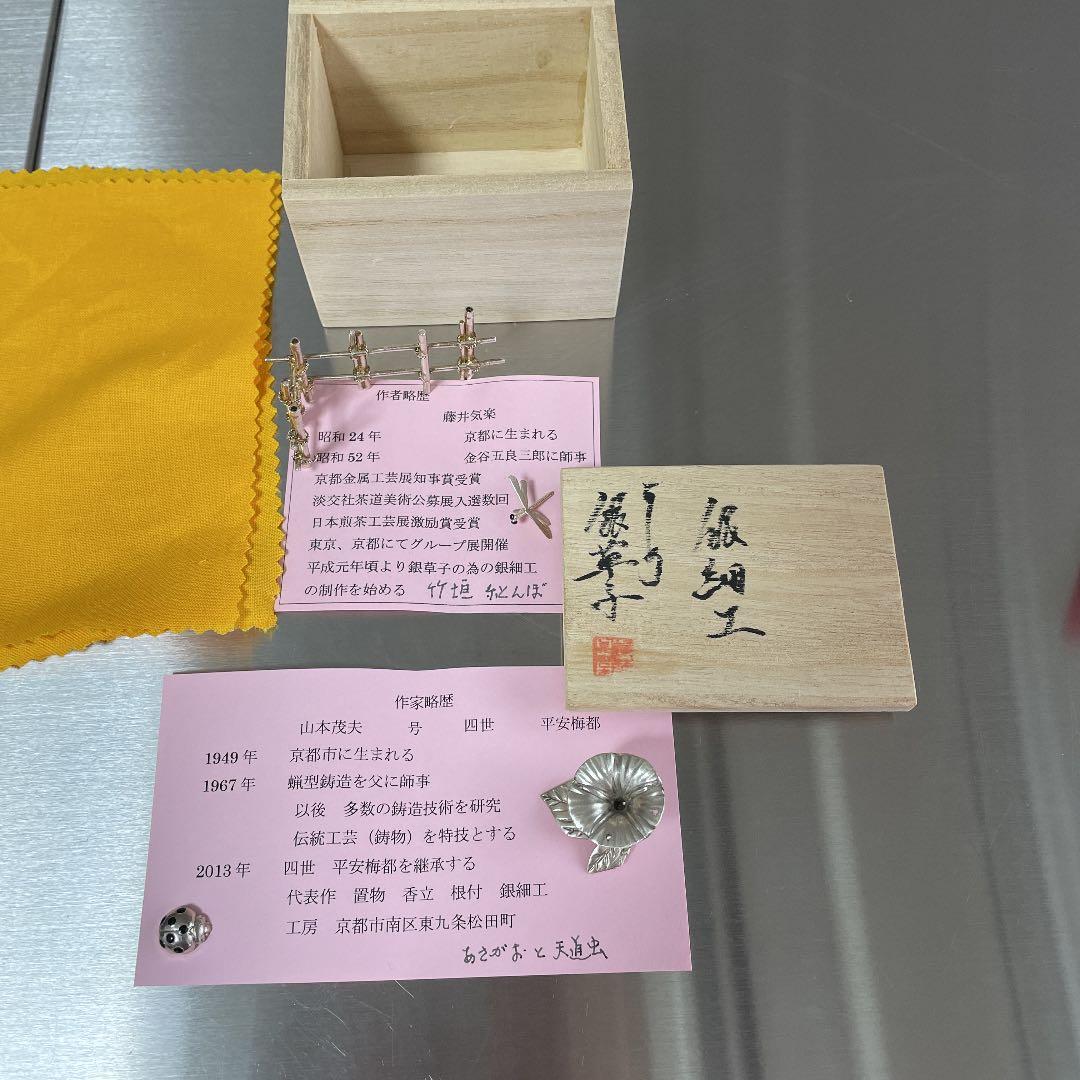 作者略歴
藤井気楽
昭和24年 京都に生まれる
昭和52年 金谷五良三郎に師事
京都金属工芸展知事賞受賞
淡交社茶道美術公募展入選数回
日本煎茶工芸展激励賞受賞
東京、京都にてグループ展開催
平成元年頃より銀草子の為の銀細工
の制作を始める 竹垣 糸とんぼ
銀細工
銀草子
作家略歴
山本茂夫 号 四世 平安梅都
1949年 京都市に生まれる
1967年 蝋型鋳造を父に師事
以後 多数の鋳造技術を研究
伝統工芸（鋳物）を特技とする
2013年 四世 平安梅都を継承する
代表作 置物 香立 根付 銀細工
工房 京都市南区東九条松田町
あさがおと天道虫